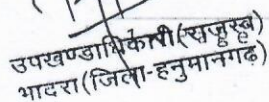 उपखण्डाधिकारी
भादरा (जिला-हनुमानगढ़)